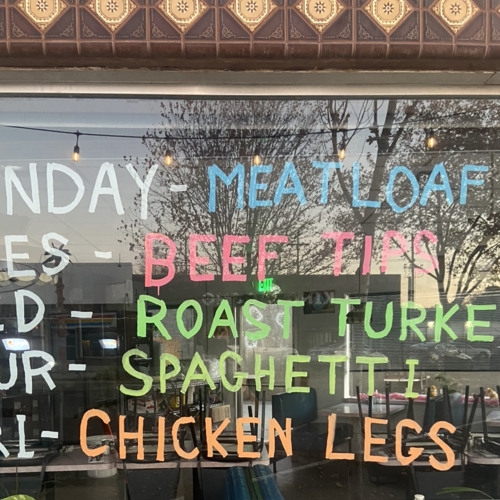 NDAY- MEATLOAF
ES - BEEF TIPS
D - ROAST TURKE
UR- SPAGHETTI
RI- CHICKEN LEGS